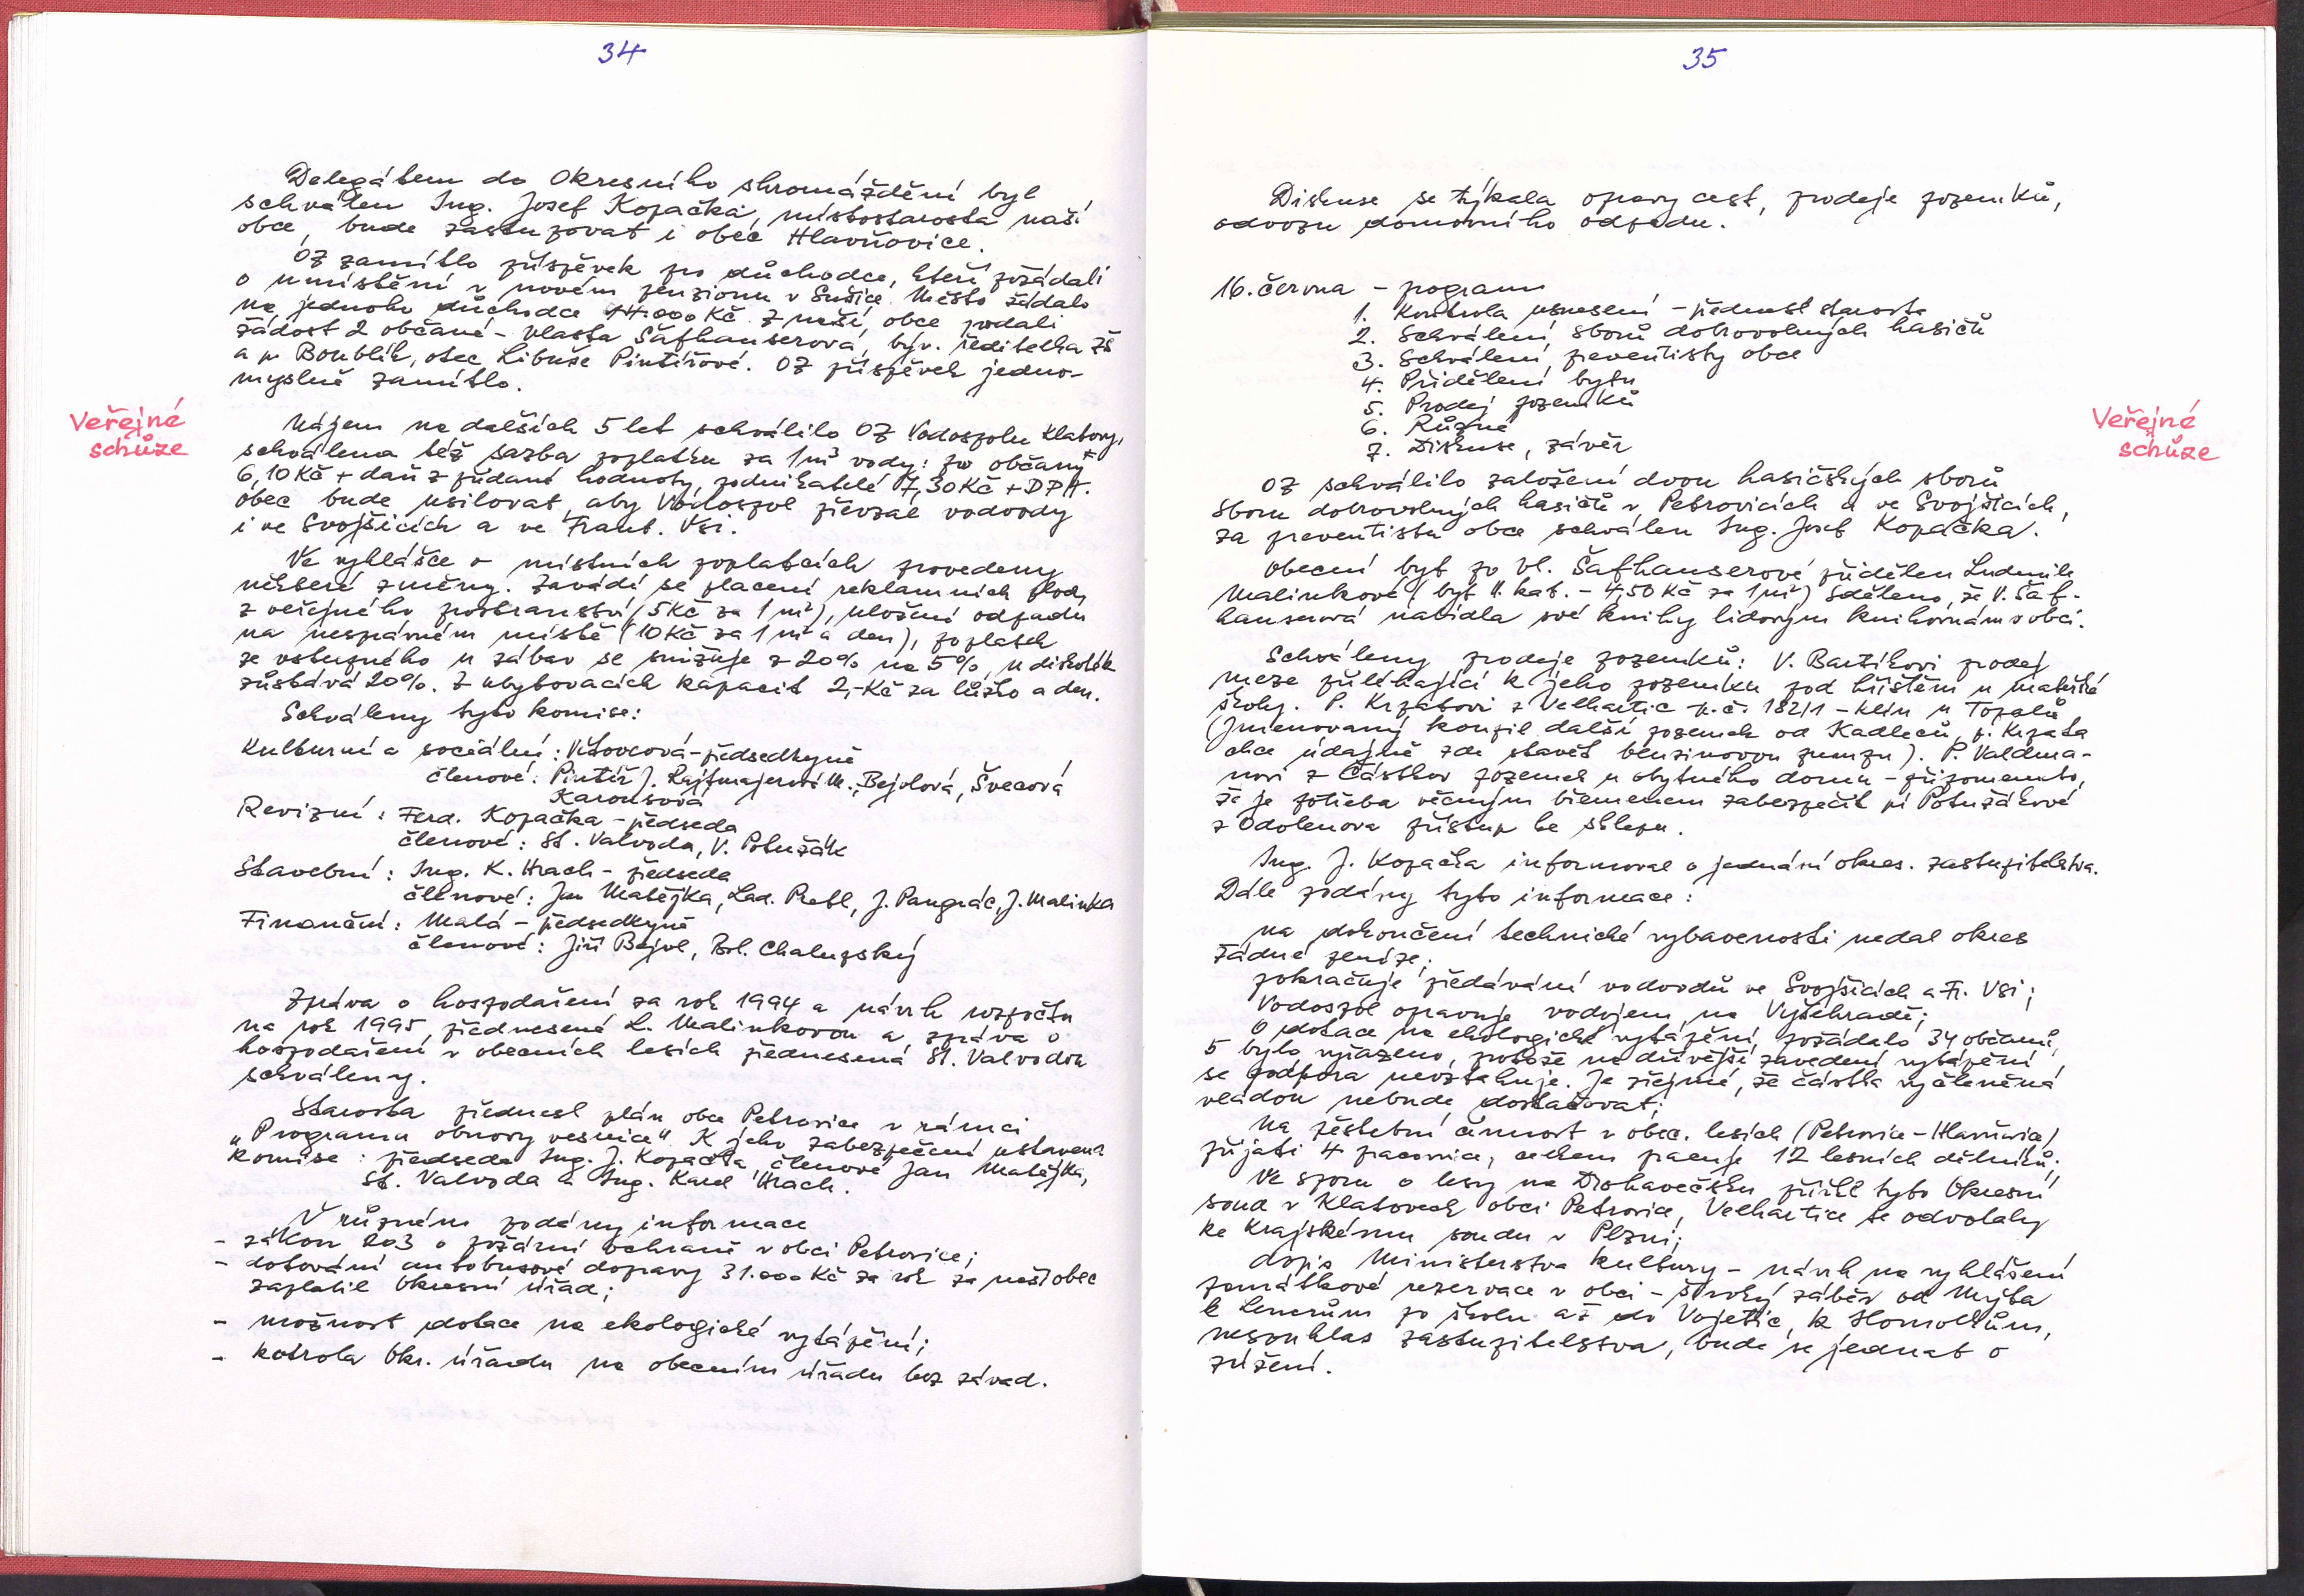 34
Delegátem do Okresního shromáždění byl
schválen Ing. Josef Kopačka, místostarosta naší
obce, bude zastupovat i obec Hlavňovice.
OZ zamítlo příspěvek pro důchodce, kteří požádali
o umístění v novém penzionu v Sušici. Město žádalo
na jednoho důchodce 14.000 Kč. Z naší obce podali
žádost 2 občané - Vlasta Šafhauserová, býv. ředitelka ZŠ
a p. Boublík, otec Libuše Pintířové. OZ příspěvek jedno-
myslně zamítlo.
Veřejné
schůze
Nájem na dalších 5 let schválilo OZ Vodospolu Klatovy,
schválena též sazba poplatku za 1 m³ vody: pro občany
6,10 Kč + daň z přidané hodnoty, podnikatelé 7,30 Kč + DPH.
Obec bude usilovat, aby Vodospol převzal vodovody
i ve Svojšicích a ve Frant. Vsi.
Ve vyhlášce o místních poplatcích provedeny
některé změny. Zavádí se placení reklamních ploch
z veřejného prostranství (5 Kč za 1 m²), uložení odpadu
na nesprávném místě (10 Kč za 1 m² a den), poplatek
ze vstupného u zábav se snižuje z 20% na 5%, u diskoték
zůstává 20%. Z ubytovacích kapacit 2,- Kč za lůžko a den.
Schváleny tyto komise:
Kulturní a sociální: Vítovcová - předsedkyně
členové: Pintíř J. Rajtmajerová M., Bejvlová, Švecová
Karousová
Revizní: Ferd. Kopačka - předseda
členové: St. Valvoda, V. Potužák
Stavební: Ing. K. Hrach - předseda
členové: Jan Matějka, Lad. Prebl, J. Pangrác, J. Malinka
Finanční: Malá - předsedkyně
členové: Jiří Bejvl, Bol. Chalupský
Zpráva o hospodaření za rok 1994 a návrh rozpočtu
na rok 1995, přednesené L. Malinkovou a zpráva o
hospodaření v obecních lesích přednesená St. Valvodou
schváleny.
Starosta přednesl plán obce Petrovice v rámci
"Programu obnovy vesnice". K jeho zabezpečení ustavena
komise: předseda Ing. J. Kopačka, členové Jan Matějka,
St. Valvoda a Ing. Karel Hrach.
V různém podány informace
- zákon 203 o požární ochraně v obci Petrovice;
- dotování autobusové dopravy 31.000 Kč za rok za naši obec
zaplatil Okresní úřad;
- možnost dotace na ekologické vytápění;
- kotrola Okr. úřadu na obecním úřadu bez závad.
35
Diskuse se týkala opravy cest, prodeje pozemků,
odvozu domovního odpadu.
16. června - pogram
1. Kontrola usnesení - přednesl starosta
2. Schválení sborů dobrovolných hasičů
3. Schválení preventisty obce
4. Přidělení bytu
5. Prodej pozemků
6. Různé
7. Diskuse, závěr
Veřejné
schůze
OZ schválilo založení dvou hasičských sborů
Sboru dobrovolných hasičů v Petrovicích a ve Svojšicích,
za preventistu obce schválen Ing. Josef Kopačka.
Obecní byt po Vl. Šafhauserové přidělen Ludmile
Malinkové (byt II. kat. - 4,50 Kč za 1 m²) Sděleno, že V. Šaf-
hauserová nabídla své knihy lidovým knihovnám v obci.
Schváleny prodeje pozemků: V. Bartíkovi prodej
meze přiléhající k jeho pozemku pod hřištěm u mateřské
školy. P. Krpatovi z Velhartic p.č. 182/1 - klín u Topolů
(Jmenovaný koupil další pozemek od Kadleců, p. Krpata
chce údajně zde stavět benzinovou pumpu). P. Valdma-
novi z Částkov pozemek u obytného domu - připomenuto,
že je potřeba věcným břemenem zabezpečit pí Potužákové
z Odolenova přístup ke sklepu.
Ing. J. Kopačka informoval o jednání okres. zastupitelstva.
Dále podány tyto informace:
na dokončení technické vybavenosti nedal okres
žádné peníze;
pokračuje předávání vodovodů ve Svojšicích a Fr. Vsi;
Vodospol opravuje vodojem na Vyšehradě;
O dotace na ekologické vytápění požádalo 34 občanů,
5 bylo vyřazeno, protože na dřívější zavedení vytápění
se podpora nevztahuje. Je zřejmé, že částka vyčleněná
vládou nebude dostačovat;
Na pěstební činnost v obec. lesích (Petrovice - Hlavňovice)
přijati 4 pracovnice, celkem pracuje 12 lesních dělníků;
Ve sporu o lesy na Drohavečsku přiřkl tyto Okresní
soud v Klatovech obci Petrovice, Velhartice se odvolaly
ke Krajskému soudu v Plzni;
dopis Ministerstva kultury - návrh na vyhlášení
památkové rezervace v obci - široký záběr od Mejta
k Lencrům po školu až do Vojetic, k Homolkům,
nesouhlas zastupitelstva, bude se jednat o
zúžení.